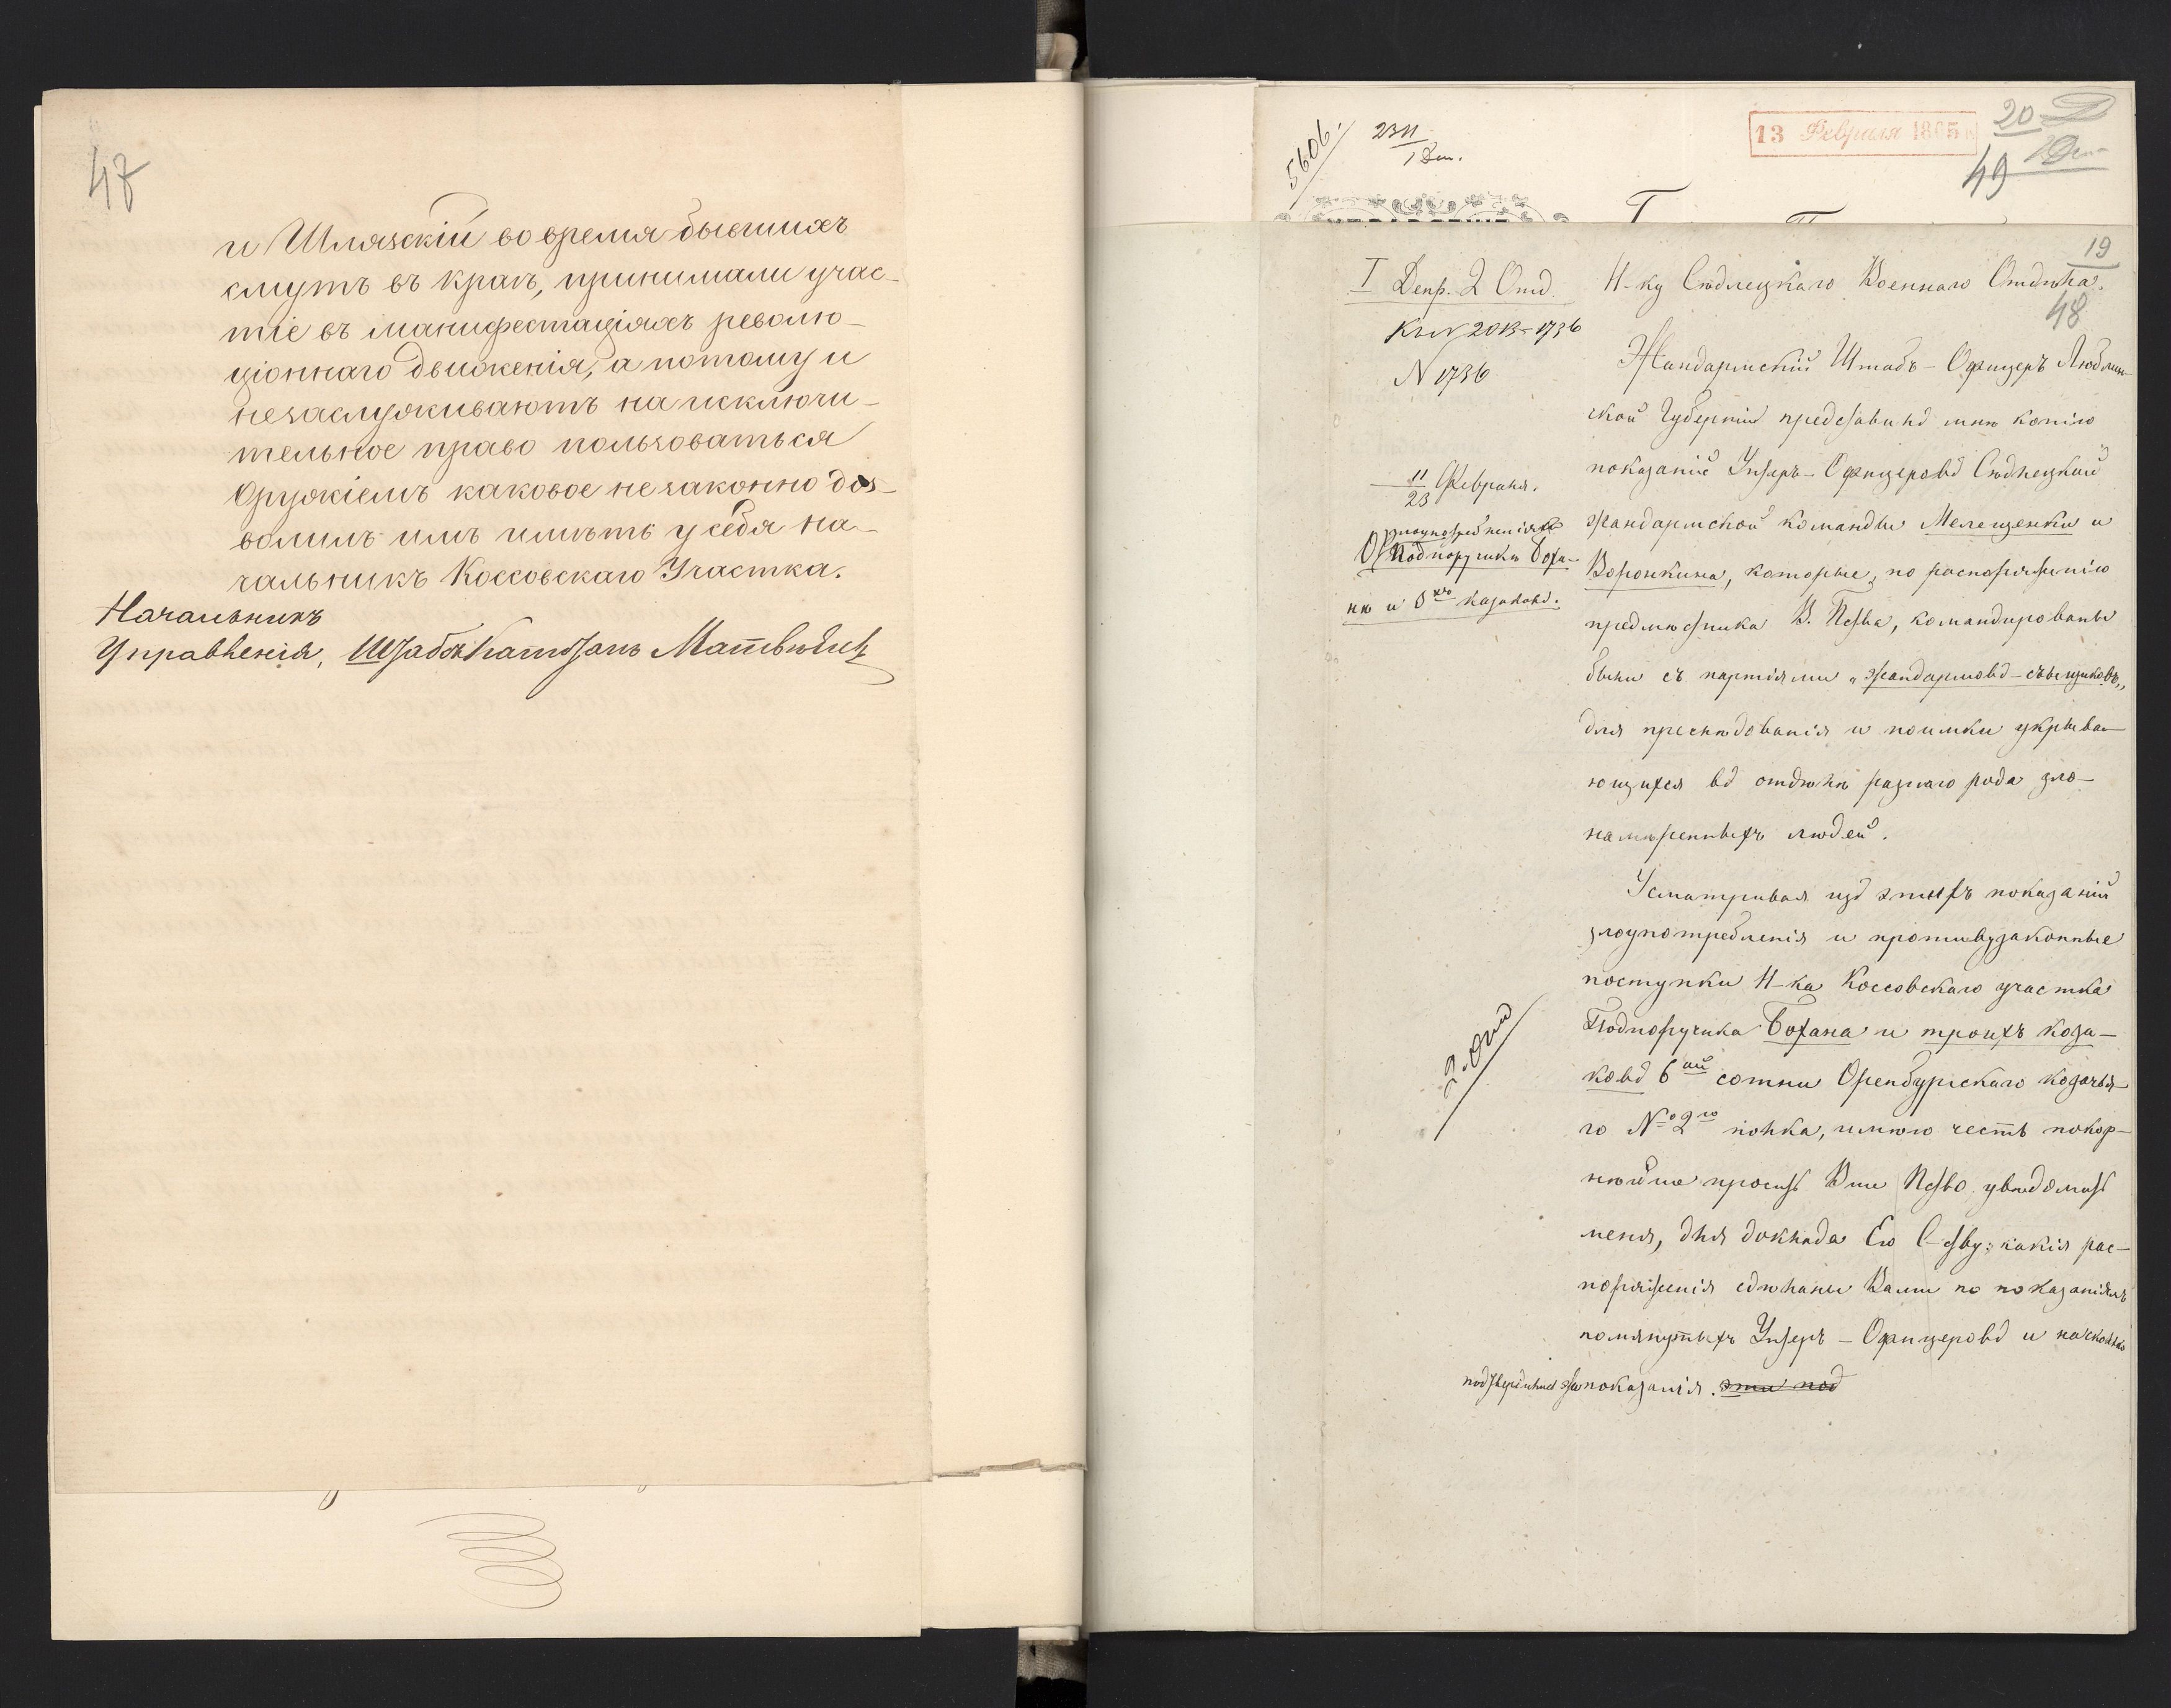 47
и Шлязскій во время бывшихъ
смутъ въ краѣ, принимали учас-
тіе въ манифестаціяхъ револю-
ціоннаго движенія, а потому и
незаслуживаютъ на исключи-
тельное право пользоваться
Оружіемъ каковое незаконно доз-
волилъ имъ имѣть у себя на-
чальникъ Коссовскаго Участка.
Начальникъ
Управленія, Штабсъ Капитанъ
5606.
2311
1 Деп.
13 Февраля 1865
20
49
19
48
I Деп. 2 Отд.
Къ № 2013-1736
№ 1736
11/23 Февраля.
О злоупотребленіяхъ
Подпоручика Боха-
на и 3хъ казаковъ.
2. Отд
Н-ку Сѣдлецкаго Военнаго Отдѣла.
Жандармскій Штабъ-Офицеръ Люблин-
ской Губерніи представилъ мнѣ копію
показаній Унтеръ-Офицеровъ Сѣдлецкой
жандармской команды Мелещенки и
Воронкина, которые, по распоряженію
предмѣстника В. Пства, командированы
были съ партіями „жандармовъ-сыщиковъ„
для преслѣдованія и поимки укрыва-
ющихся въ отдѣлѣ разнаго рода зло-
намѣренныхъ людей.
Усматривая изъ этихъ показаній
злоупотребленія и противузаконные
поступки Н-ка Коссовскаго участка
Подпоручика Бохана и троихъ коза-
ковъ 6ой сотни Оренбургскаго козачья-
го № 2го полка, имѣю честь покор-
нѣйше просить Вше Пство увѣдомить
меня, для доклада Его С-ству: какія рас-
поряженія сдѣланы Вами по показаніямъ
помянутыхъ Унтеръ-Офицеровъ и насколько
подтвердились эти показанія. эти под